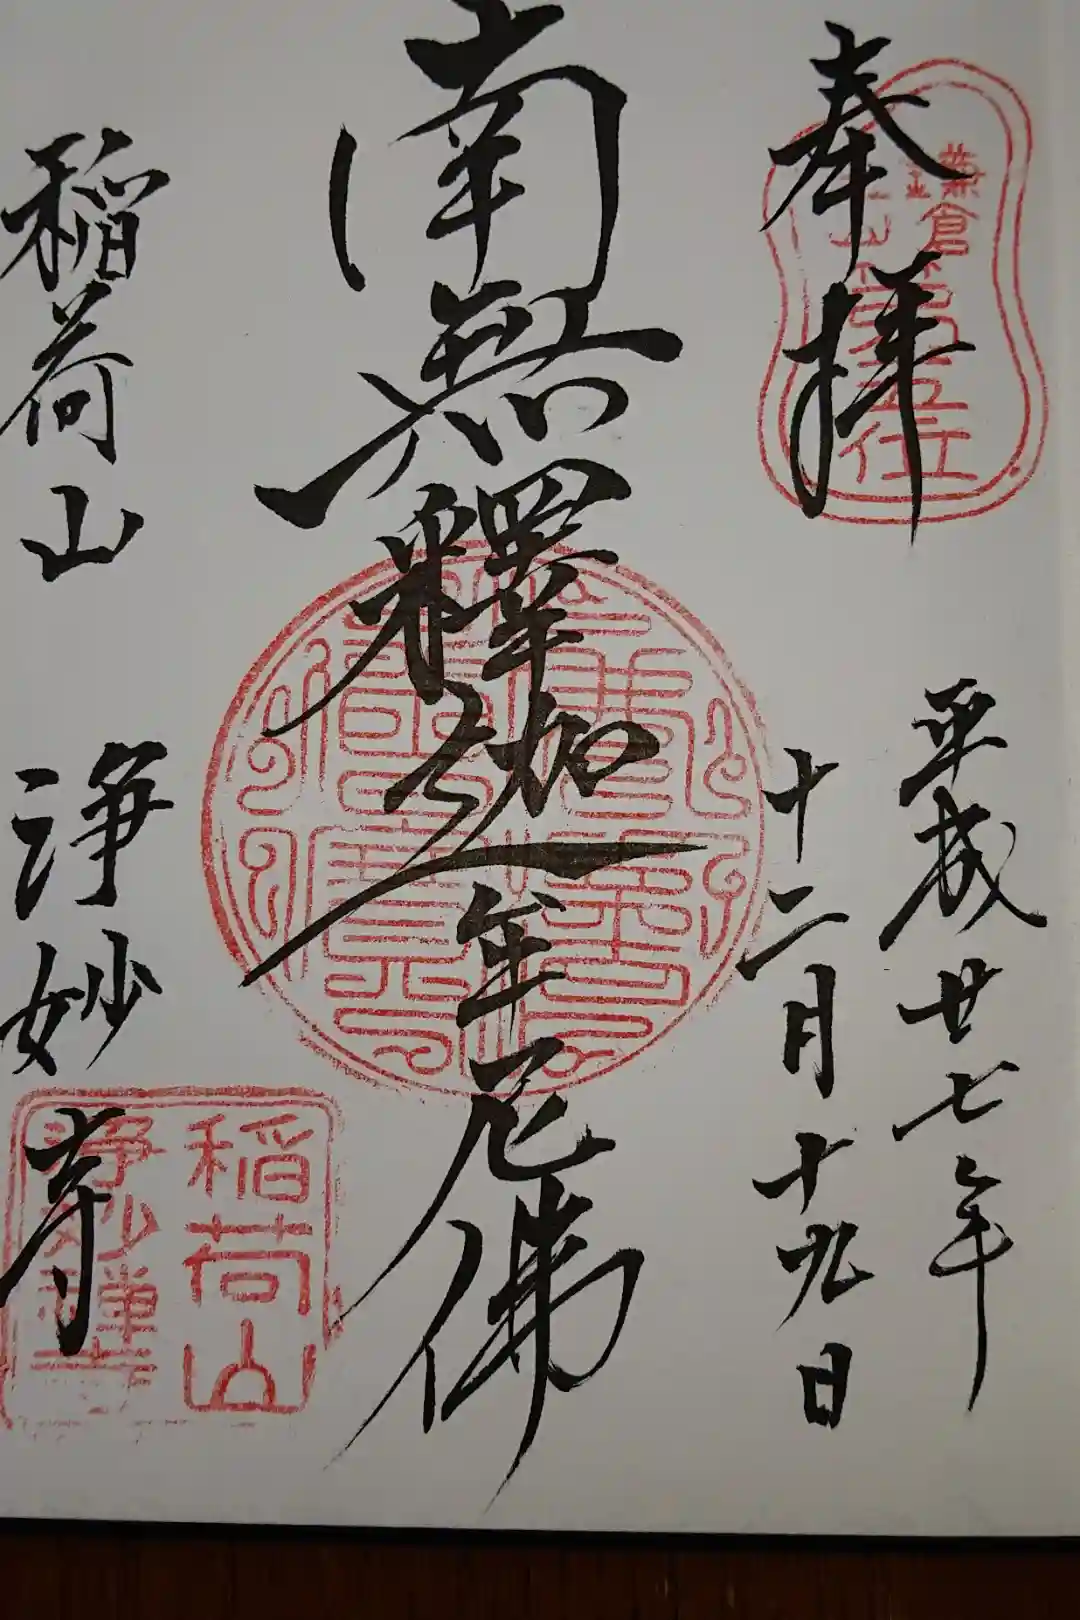 奉拝
平成廿七年
十二月十九日
南無釋迦牟尼佛
稲荷山
浄妙寺
鎌倉
第五位
稲荷山
浄妙禅寺